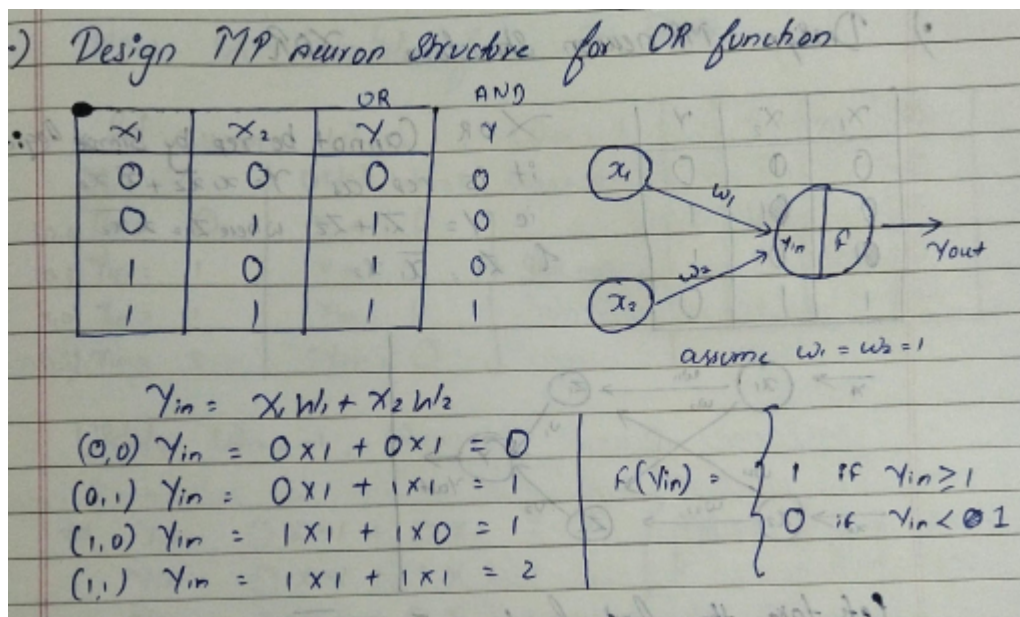 .) Design MP neuron structure for OR function
OR AND
X₁ X₂ Y Y
0 0 0 0
0 1 1 0
1 0 1 0
1 1 1 1
x₁
w₁
Yin f
Yout
w₂
x₂
assume w₁ = w₂ = 1
Yin = X₁W₁ + X₂W₂
(0,0) Yin = 0x1 + 0x1 = 0
(0,1) Yin = 0x1 + 1x1 = 1
(1,0) Yin = 1x1 + 1x0 = 1
(1,1) Yin = 1x1 + 1x1 = 2
F(Yin) = { 1 if Yin ≥ 1
0 if Yin < 1